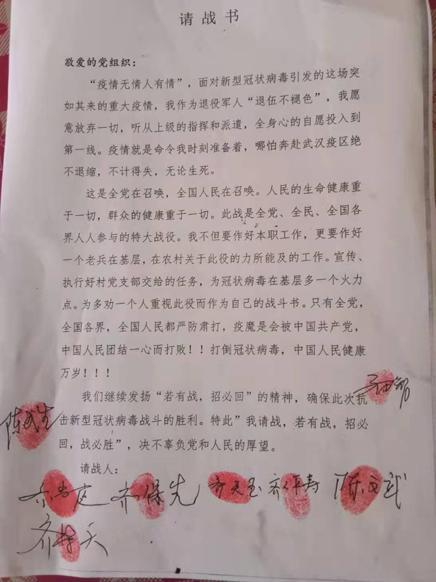 请战书
敬爱的党组织：
“疫情无情人有情”，面对新型冠状病毒引发的这场突
如其来的重大疫情，我作为退役军人“退伍不褪色”，我愿
意放弃一切，听从上级的指挥和派遣，全身心的自愿投入到
第一线。疫情就是命令我时刻准备着，哪怕奔赴武汉疫区绝
不退缩，不计得失，无论生死。
这是全党在召唤，全国人民在召唤。人民的生命健康重
于一切，群众的健康重于一切。此战是全党、全民、全国各
界人人参与的特大战役。我不但要作好本职工作，更要作好
一个老兵在基层，在农村关于此役的力所能及的工作。宣传、
执行好村党支部交给的任务，为冠状病毒在基层多一个火力
点。为多劝一个人重视此役而作为自己的战斗书。只有全党，
全国各界，全国人民都严防肃打，疫魔是会被中国共产党，
中国人民团结一心而打败！！打倒冠状病毒，中国人民健康
万岁！！！
我们继续发扬“若有战，招必回”的精神，确保此次抗
击新型冠状病毒战斗的胜利。特此“我请战，若有战，招必
回，战必胜”，决不辜负党和人民的厚望。
请战人：
齐保先
陈文武